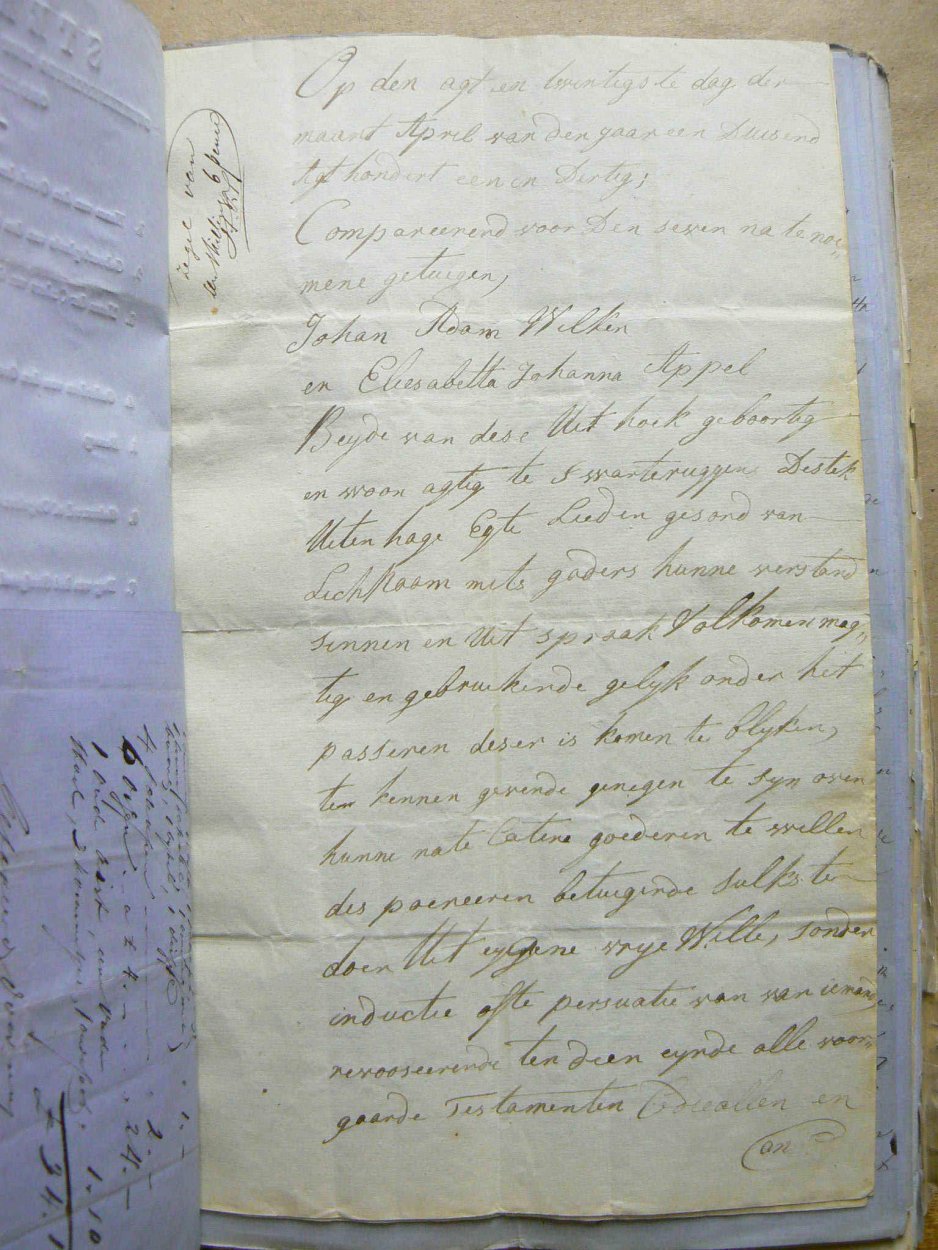 zegel van
een skillings 6 pence
Op den agt en twintigste dag der
maant April van den yaar een Duisend
Agt hondert een en Dertig;
Compareerend voor Den seven na te noe„
mene getuigen,
Johan Adam Wilken
en Eliesabetta Johanna Appel
Beyde van dese Uit hoek geboortig
en woon agtig te Swarteruggens Destek
Uiten hage Egte Lieden gesond van
Lichkaam mits gaders hunne verstand
sinnen en Uit spraak Volkomen mag„
tig en gebruikende gelyk onder het
passeren deser is komen te blyken,
tem kennen gevende genegen te syn over
hunne nate Latene goederen te willen
des poeneeren betuigende sulks te
doen Uit eygene vrye Wille, sonder
inductie ofte persuatie van van iemand,
revooseerende ten dien eynde alle voor„
gaarde Testamenten Codicallen en
an
4 
6 Osse. - a t 4. - - - 24. -
1 oude kar en oude
1. 10
2.
£ 34. 1